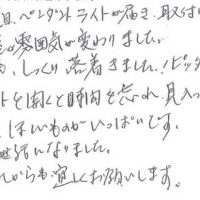 日、ペンダントライトが届き、取付け
の雰囲気が変わりました。
、しっくり落着きました！ピッ
トを開くと時間を忘れ、見入っ
ほしいものがいっぱいです。
世話になりました。
からも宜しくお願いします。